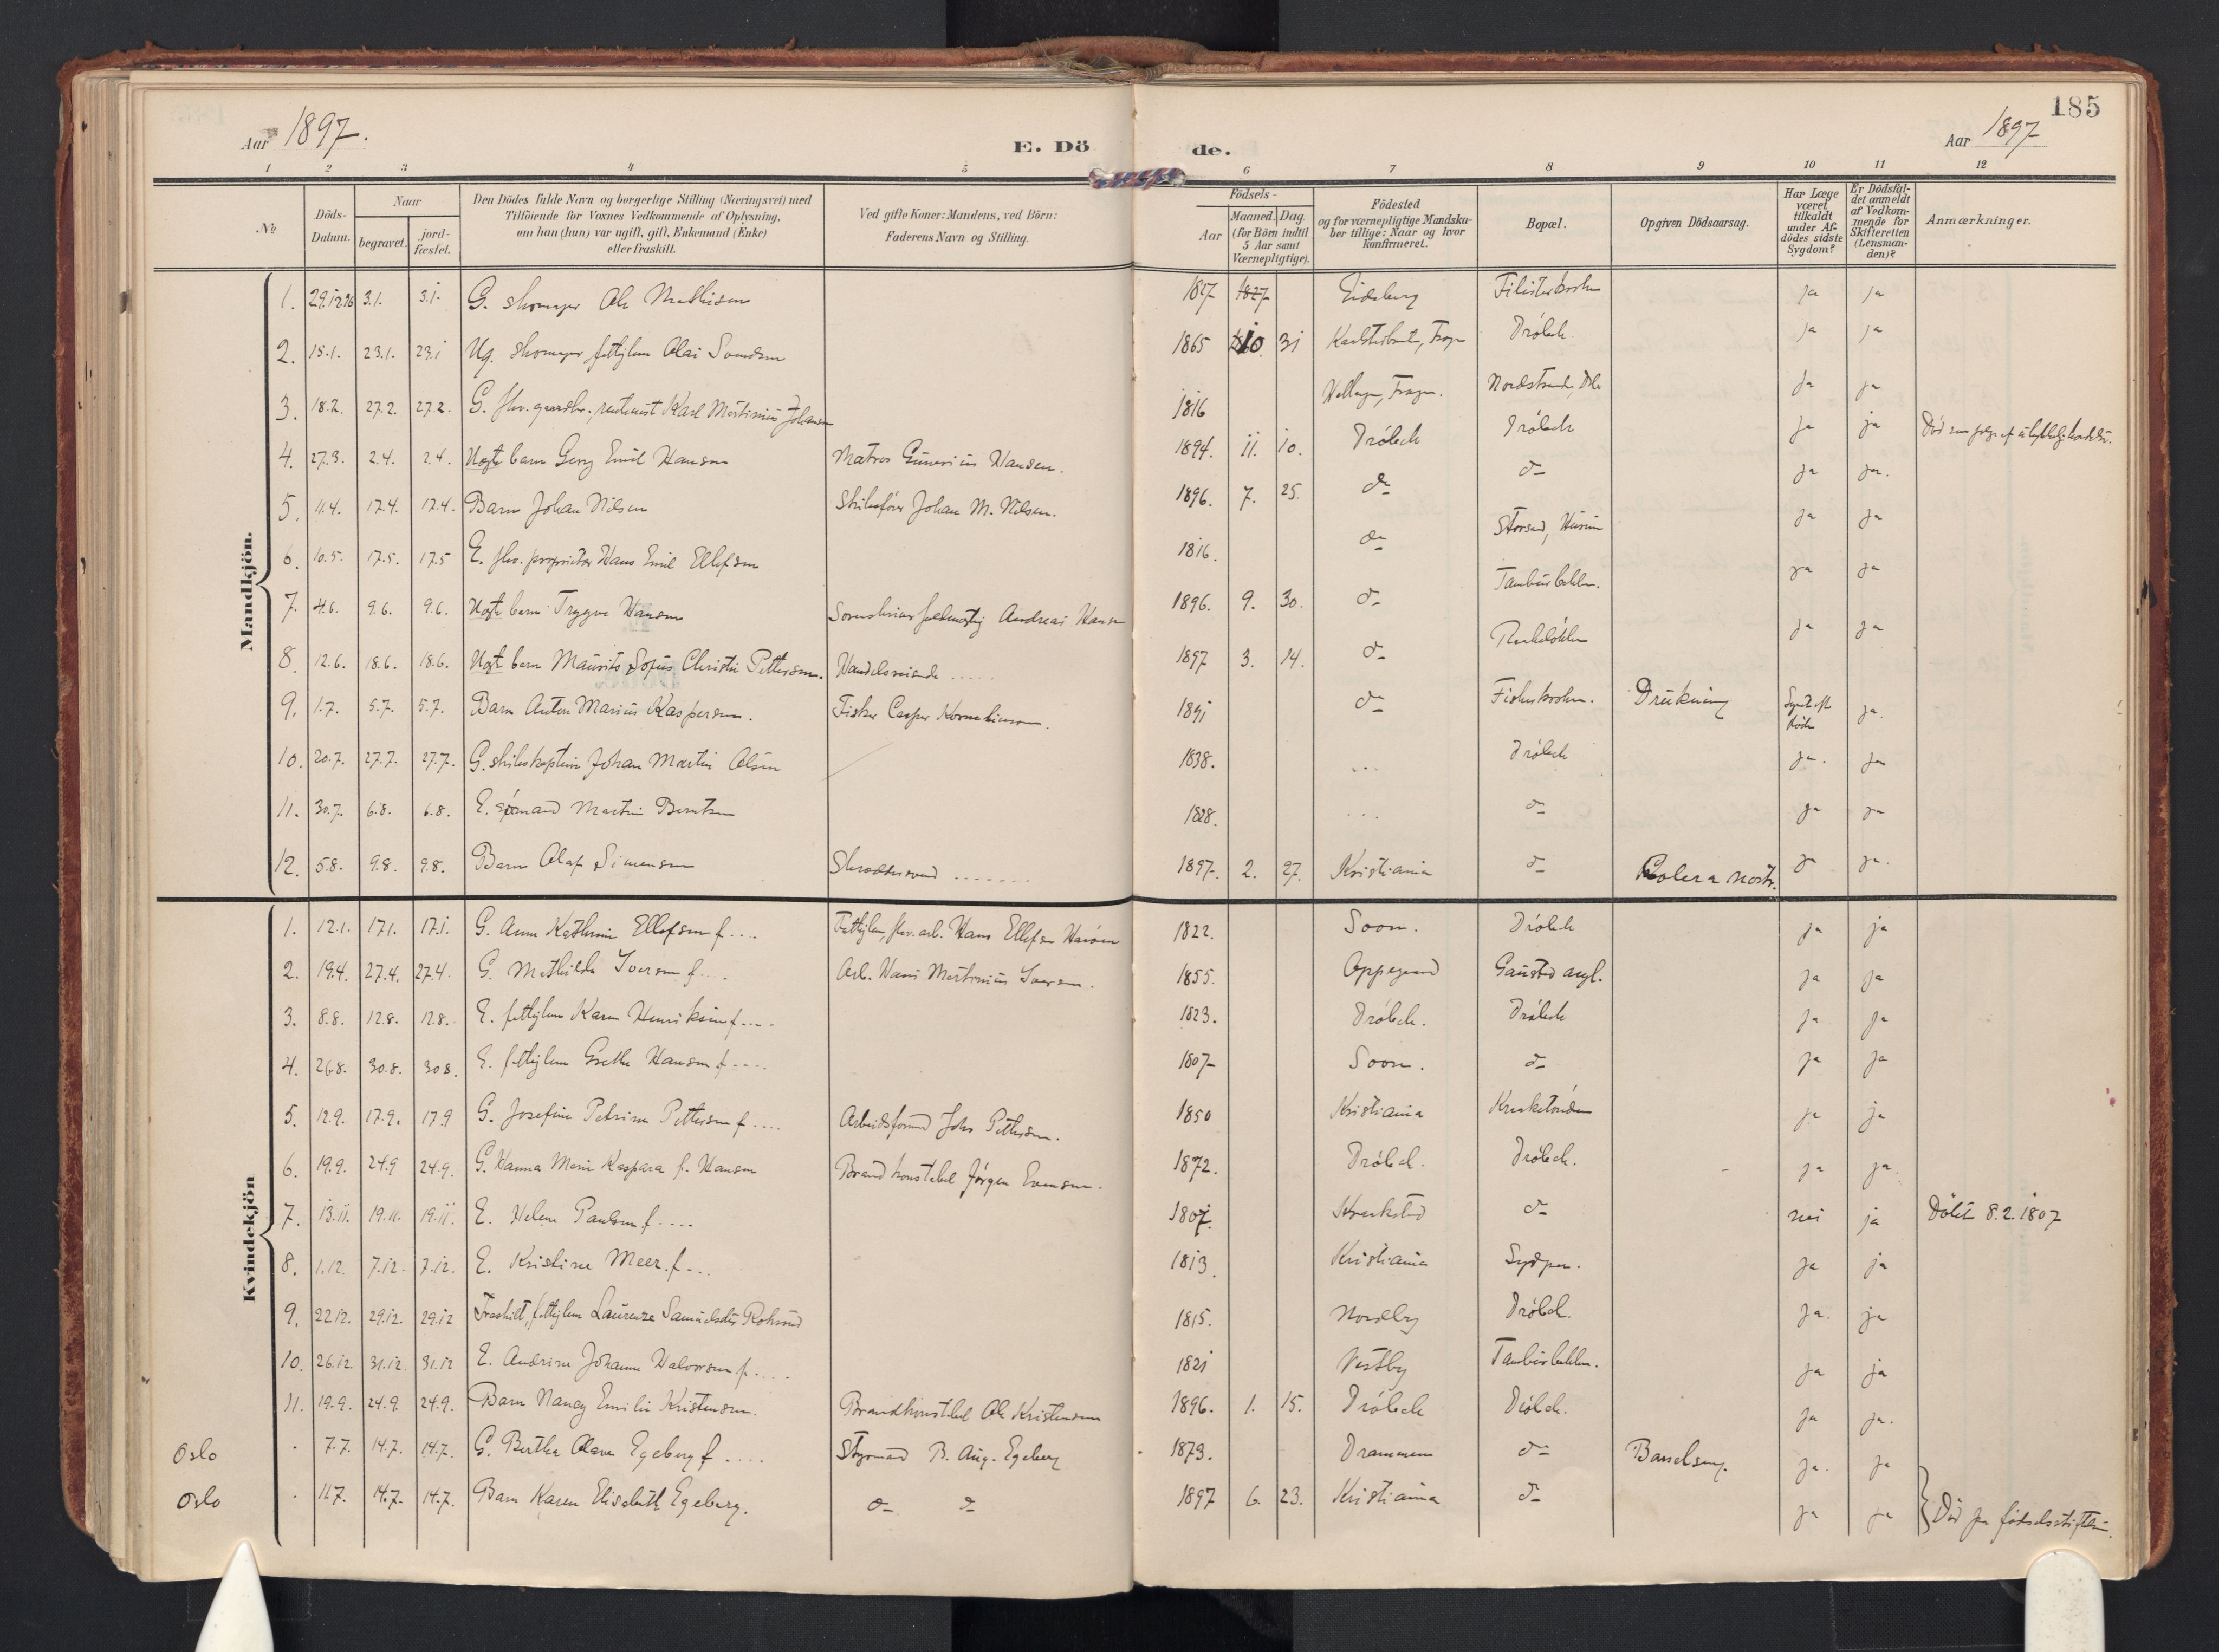 185
Aar 1897.
E. Döde.
Aar 1897
1 2 3 4 5 6 7 8 9 10 11 12
№
Döds-Datum.
Naar
begravet.
jord-fæstet.
Den Dödes fulde Navn og borgerlige Stilling (Næringsvei) med
Tilföiende for Voxnes Vedkommende af Oplysning,
om han (hun) var ugift, gift, Enkemand (Enke)
eller fraskilt.
Ved gifte Koner: Mandens, ved Börn:
Faderens Navn og Stilling.
Födsels-
Aar
Maaned. Dag.
(for Börn indtil
5 Aar samt
Værnepligtige).
Födested
og for værnepligtige Mandska-
ber tillige: Naar og hvor
konfirmeret.
Bopæl.
Opgiven Dödsaarsag.
Har Læge
været
tilkaldt
under Af-
dödes sidste
Sygdom?
Er Dödsfal-
det anmeldt
af Vedkom-
mende for
Skifteretten
(Lensman-
den)?
Anmærkninger.
Mandkjön.
1. 29.12.96 3.1. 3.1. G. skomager Ole Mathisen 1827 1827 Eidsberg ja ja
2. 15.1. 23.1. 23.1 Ug. skomager fattiglem Olai Svendsen 1865 10. 31 Drøbak. ja ja
3. 18.2. 27.2. 27.2. G. fhv. gaardbr., rentenist Karl Martinius Johansen 1816 ja ja
4. 27.3. 2.4. 2.4. Uegte barn Georg Emil Hansen Matros Gunerius Hansen. 1894. 11. 10. Drøbak Drøbak ja ja
5. 11.4. 17.4. 17.4. Barn Johan Nilsen Skibsfører Johan M. Nilsen. 1896. 7. 25. do do ja ja.
6. 10.5. 17.5. 17.5 E. fhv. proprietær Hans Emil Ellefsen 1816. do Storsand, Hurum ja ja
7. 4.6. 9.6. 9.6. Uegte barn Trygve Hansen Andreas Hansen 1896. 9. 30. do Tamburbakken. ja ja
8. 12.6. 18.6. 18.6. Uegte barn Maurits Sofus Christie Pettersen. Handelsreisende ..... 1897 3. 14. do ja ja
9. 1.7. 5.7. 5.7. Barn Anton Marius Kaspersen. Fisker Casper 1891 do Drukning ja.
10. 20.7. 27.7. 27.7. G. skibskaptein Johan Martin Olsen 1838. ... Drøbak ja. ja
11. 30.7. 6.8. 6.8. E. sømand Martin Berntsen 1828. ... do ja ja
12. 5.8. 9.8. 9.8. Barn Olaf Simensen Skræddersvend ....... 1897. 2. 27. Kristiania do Colera nostr. ja ja.
Kvindekjön
1. 12.1. 17.1. 17.1. G. Anne Kathrine Ellefsen f.... Fattiglem, fhv. arb. Hans Ellefsen 1822. Soon. Drøbak ja ja
2. 19.4. 27.4. 27.4. G. Mathilde Iversen f.... Arb. Hans Martinius Iversen. 1855. Oppegaard Gaustad asyl. ja ja
3. 8.8. 12.8. 12.8. E. fattiglem Karen Henriksen f.... 1823. Drøbak. Drøbak ja ja
4. 26.8. 30.8. 30.8. E. fattiglem Grethe Hansen f.... 1807 Soon. do ja ja
5. 12.9. 17.9. 17.9 G. Josefine Petrine Pettersen f.... Arbeidsformd Johs Pettersen. 1850 Kristiania ja ja
6. 19.9. 24.9 24.9. G. Hanna Marie Kaspara f. Hansen Brandkonstabel Jørgen Evensen. 1872. Drøbak. Drøbak. ja ja.
7. 13.11. 19.11. 19.11. E. Helene Paulsen f.... 1807. Kraakstad do nei ja Døbt 8.2.1807
8. 1.12. 7.12. 7.12. E. Kristine Meer. f... 1813. Kristiania ja ja
9. 22.12. 29.12. 29.12 Fraskilt, fattiglem Laurenze Samuelsdtr 1815. Nordby Drøbak. ja. ja
10. 26.12 31.12. 31.12 E. Andrine Johanne Halvorsen f.... 1821 Vestby Tamburbakken. ja ja
11. 19.9. 24.9. 24.9. Barn Nancy Emilie Kristensen. Brandkonstabel Ole Kristensen 1896. 1. 15. Drøbak Drøbak. ja ja.
Oslo . 7.7. 14.7. 14.7. G. Berthe Olava Egeberg f.... Styrmand B. Aug. Egeberg 1873. Drammen do Barselseng. ja. ja
Oslo . 11.7. 14.7. 14.7. Barn Karen Elisabeth Egeberg. do do 1897 6. 23. Kristiania do ja ja
Død paa fødselsstiftelsen.